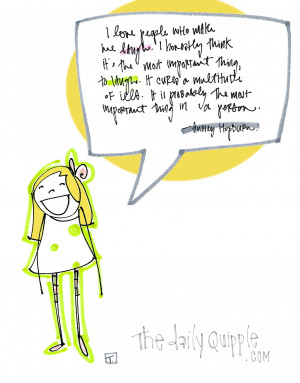 I love people who make
me laugh. I honestly think
it's the most important thing,
to laugh. It cures a multitude
of ills. It is probably the most
important thing in a person.
Audrey Hepburn
The daily Quipple
.COM